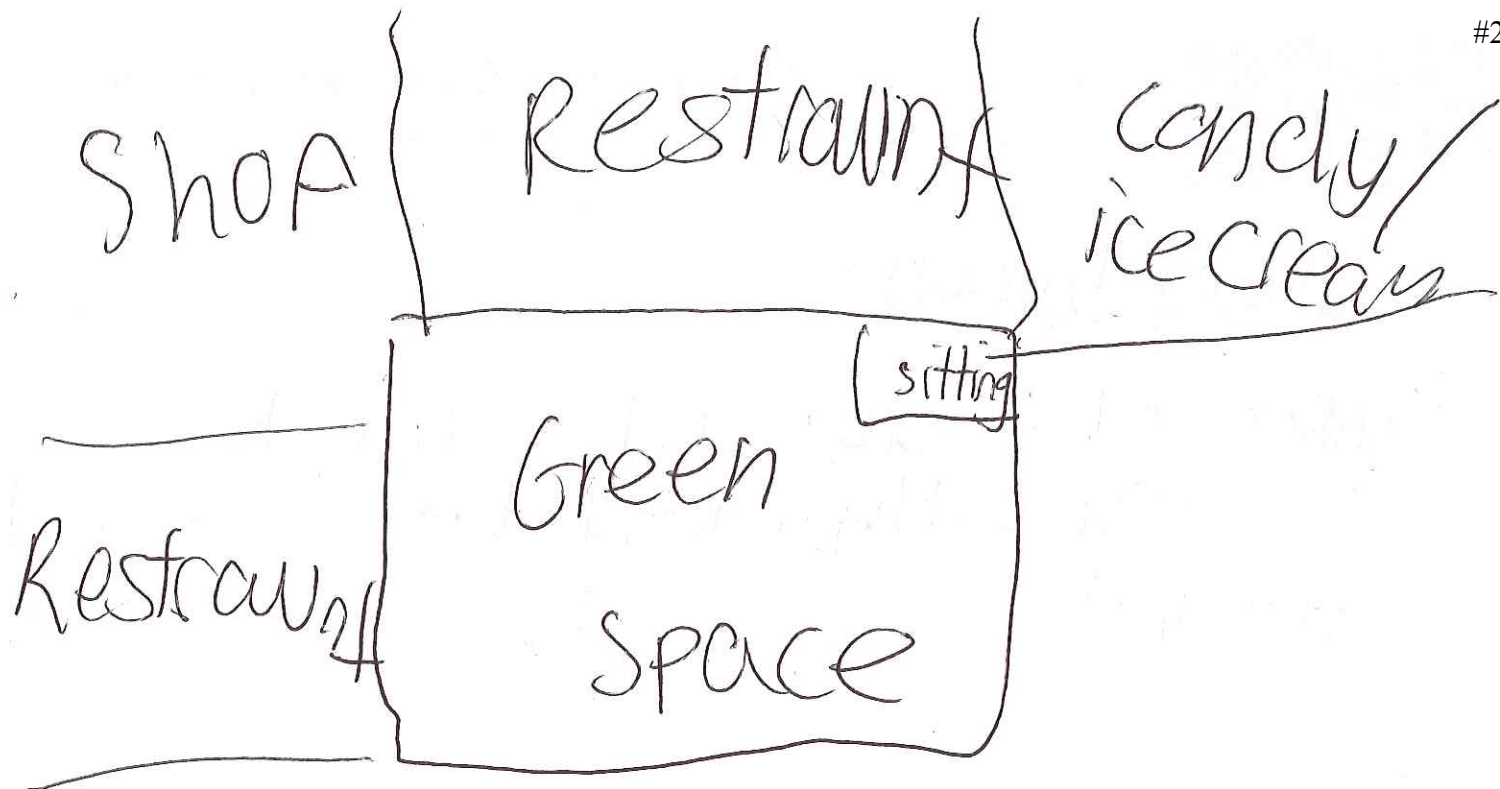 #2
Shop
Restraunt
Candy/
ice cream
sitting
Green
Space
Restraunt